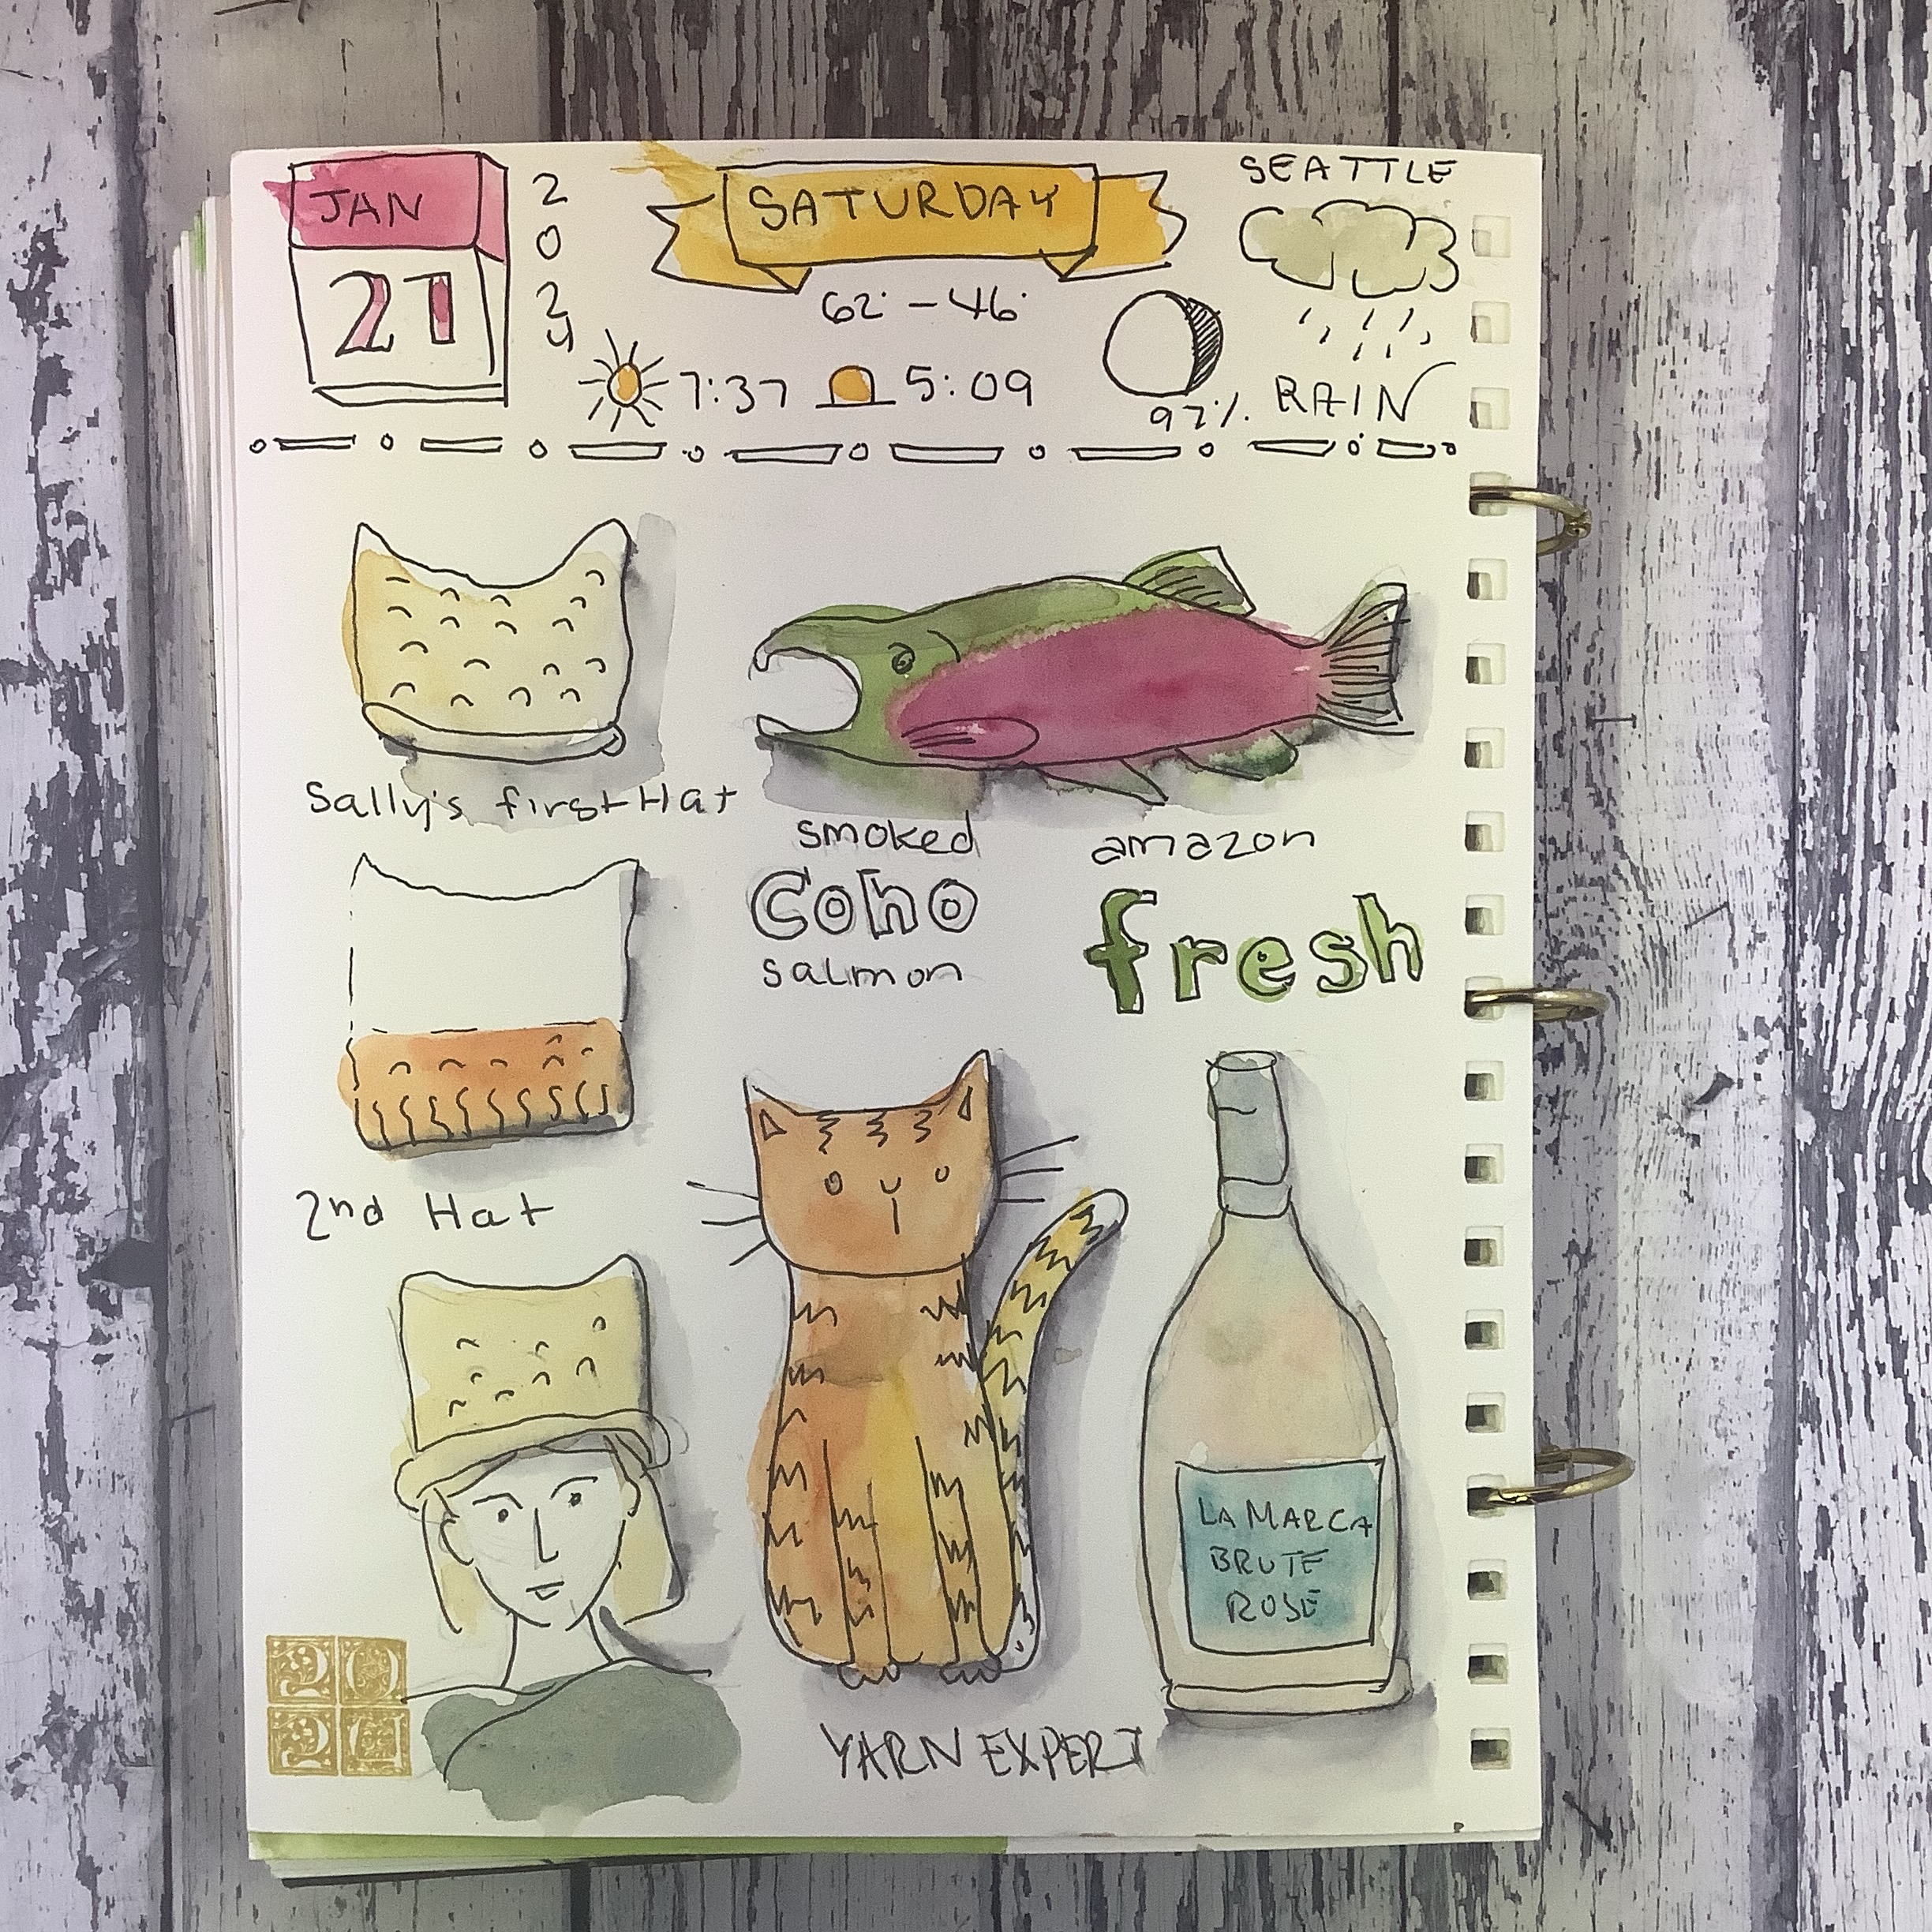 JAN
27
2024
SATURDAY
62° - 46°
7:37
5:09
SEATTLE
97%
RAIN
Sally's first Hat
smoked
Coho
salmon
amazon
fresh
2nd Hat
LA MARCA
BRUTE
ROSÉ
YARN EXPERT
20
24